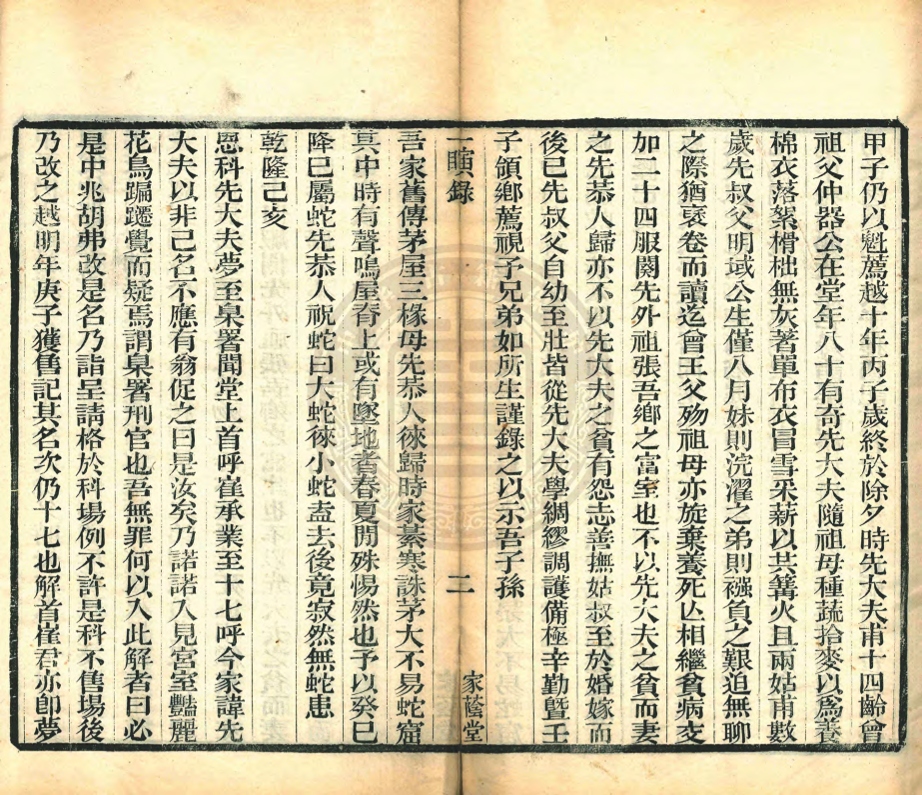 甲子仍以魁薦越十年丙子歲終於除夕時先大夫甫十四齡曾
祖父仲器公在堂年八十有奇先大夫隨祖母種蔬拾麥以爲養
棉衣落絮榾柮無灰著單布衣冒雪采薪以其篝火旦兩姑甫數
歲先叔父明域公生僅八月妹則浣濯之弟則襁負之艱迫無聊
之際猶裒卷而讀迄會王父歿祖母亦旋棄養死亾相繼貧病交
加二十四服闋先外祖張吾鄉之富室也不以先大夫之貧而妻
之先恭人歸亦不以先大夫之貧有怨志善撫姑叔至於婚嫁而
後已先叔父自幼至壯皆從先大夫學綢繆調護備極辛勤暨壬
子領鄉薦視予兄弟如所生謹錄之以示吾子孫
一瞚錄 二 家蔭堂
吾家舊傳茅屋三椽母先恭人徠歸時家綦寒誅茅大不易蛇窟
其中時有聲鳴屋脊上或有墜地者春夏閒殊惕然也予以癸巳
降巳屬蛇先恭人祝蛇曰大蛇徠小蛇盍去後竟寂然無蛇患
乾隆己亥
恩科先大夫夢至臬署聞堂上首呼崔承業至十七呼今家諱先
大夫以非己名不應有翁促之曰是汝矣乃諾諾入見宮室豔麗
花鳥蹁躚覺而疑焉謂臬署刑官也吾無罪何以入此解者曰必
是中兆胡弗改是名乃詣呈請格於科場例不許是科不售場後
乃改之越明年庚子獲售記其名次仍十七也解首崔君亦卽夢